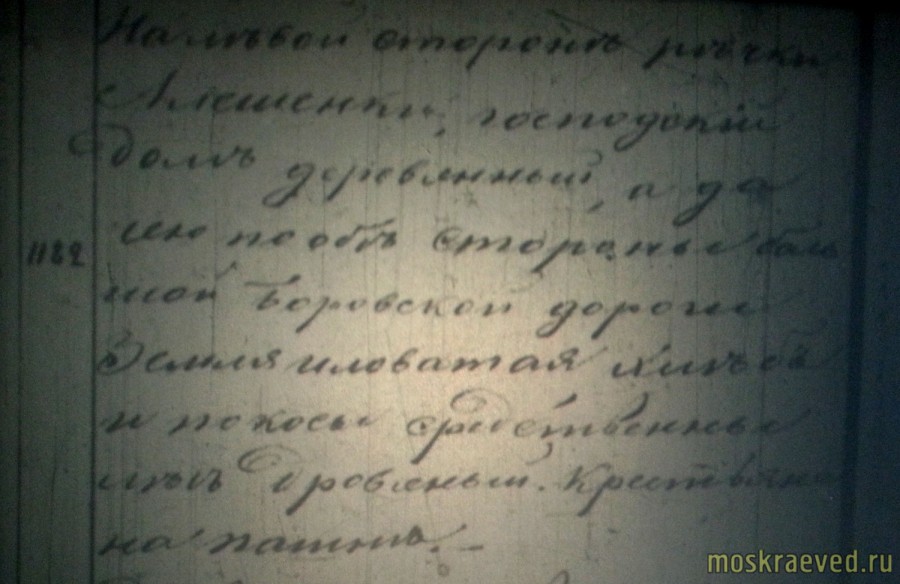 На лѣвой сторонѣ рѣчки
Алешенки, господскій
домъ деревянный, а да
чею по обѣ стороны боль
1182
шой Боровской дороги
Земля иловатая хлѣбъ
и покосы средственны
лѣсъ дровяный. Крестьяне
на пашнѣ. –
moskraeved.ru